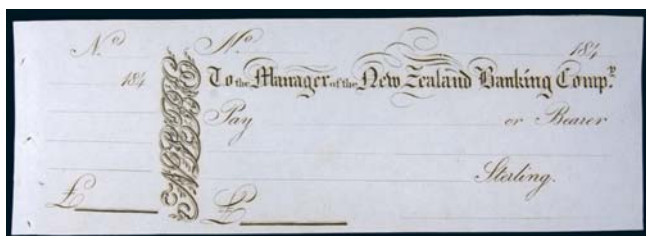 No
184
£
No
184
To the Manager of the New Zealand Banking Compy.
Pay or Bearer
Sterling.
£